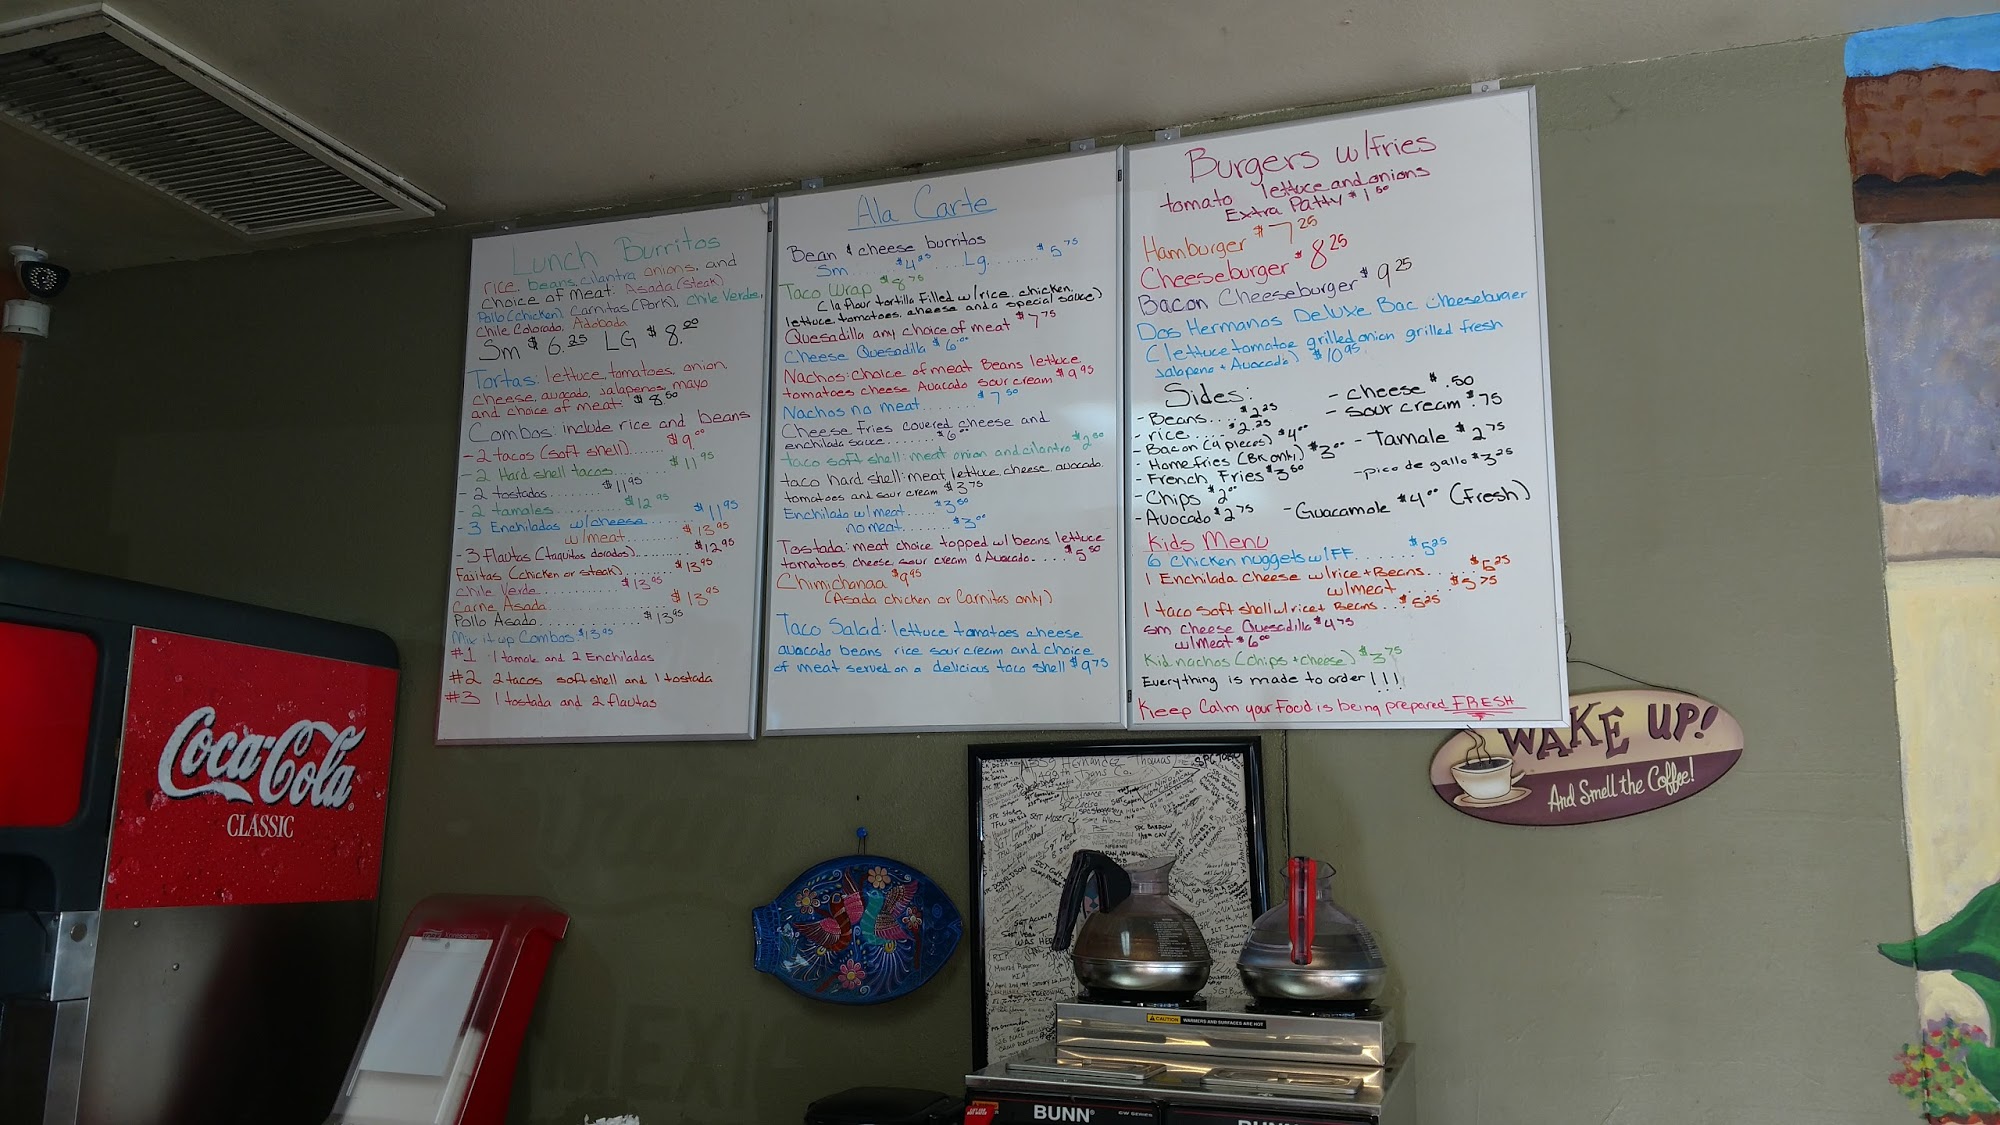 Lunch Burritos
rice, beans, cilantro onions, and
choice of meat: Asada (steak)
Pollo (chicken), Carnitas (Pork), Chile Verde,
Chile Colorado, Adobada
Sm $6.25 LG $8.00
Tortas: lettuce, tomatoes, onion
cheese, avocado, jalapenos, mayo
and choice of meat. $8.50
Combos: include rice and beans
- 2 tacos (soft shell)....... $9.00
- 2 Hard shell tacos......... $11.95
- 2 tostadas.......... $11.95
- 2 tamales........... $12.95
- 3 Enchiladas w/cheese....... $11.95
w/meat....... $13.95
- 3 flautas (taquitos dorados)......... $12.95
Fajitas (chicken or steak)........... $13.95
Chile Verde............ $13.95
Carne Asada............ $13.95
Pollo Asado............ $13.95
Mix it up Combos: $13.95
#1 1 tamale and 2 Enchiladas
#2 2 tacos soft shell and 1 tostada
#3 1 tostada and 2 flautas
Ala Carte
Bean & cheese burritos
Sm...... $4.25 Lg....... $5.75
Taco Wrap $8.75
(1a flour tortilla filled w/rice, chicken,
lettuce, tomatoes, cheese and a special sauce)
Quesadilla any choice of meat $7.75
Cheese Quesadilla $6.00
Nachos: choice of meat Beans lettuce
tomatoes cheese Avacado sour cream $9.95
Nachos no meat....... $7.50
Cheese fries covered cheese and
enchilada sauce........ $6.00
taco soft shell: meat onion and cilantro $2.50
taco hard shell: meat, lettuce, cheese, avocado,
tomatoes and sour cream $3.75
Enchilada w/meat...... $3.50
no meat....... $3.00
Tostada: meat choice topped w/ beans lettuce
tomatoes cheese, sour cream & Avocado.... $5.50
Chimichanga $9.95
(Asada chicken or Carnitas only)
Taco Salad: lettuce tomatoes cheese
avocado beans rice sour cream and choice
of meat served on a delicious taco shell $9.75
Burgers w/fries
tomato lettuce and onions
Extra Patty $1.50
Hamburger $7.25
Cheeseburger $8.25
Bacon Cheeseburger $9.25
Dos Hermanos Deluxe Bac Cheeseburger
(lettuce tomatoe grilled onion grilled fresh
Jalapeno + Avocado) $10.95
Sides:
- Beans... $2.25
- rice..... $2.25
- Bacon (4 pieces) $4.00
- Homefries (BK only) $3.00
- French Fries $3.50
- Chips $2.00
- Avocado $2.75
- cheese $.50
- sour cream $.75
- Tamale $2.75
- pico de gallo $3.25
- Guacamole $4.00 (Fresh)
Kids Menu
6 Chicken nuggets w/FF........ $5.25
1 Enchilada cheese w/rice + Beans...... $5.25
w/meat....... $5.75
1 taco soft shell w/rice + Beans... $5.25
sm cheese Quesadilla $4.75
w/meat $6.00
Kid nachos (chips + cheese) $3.75
Everything is made to order!!!
Keep Calm your Food is being prepared FRESH
WAKE UP!
And Smell the Coffee!
Coca-Cola
CLASSIC
CAUTION WARMERS AND SURFACES ARE HOT
BUNN
BUNN